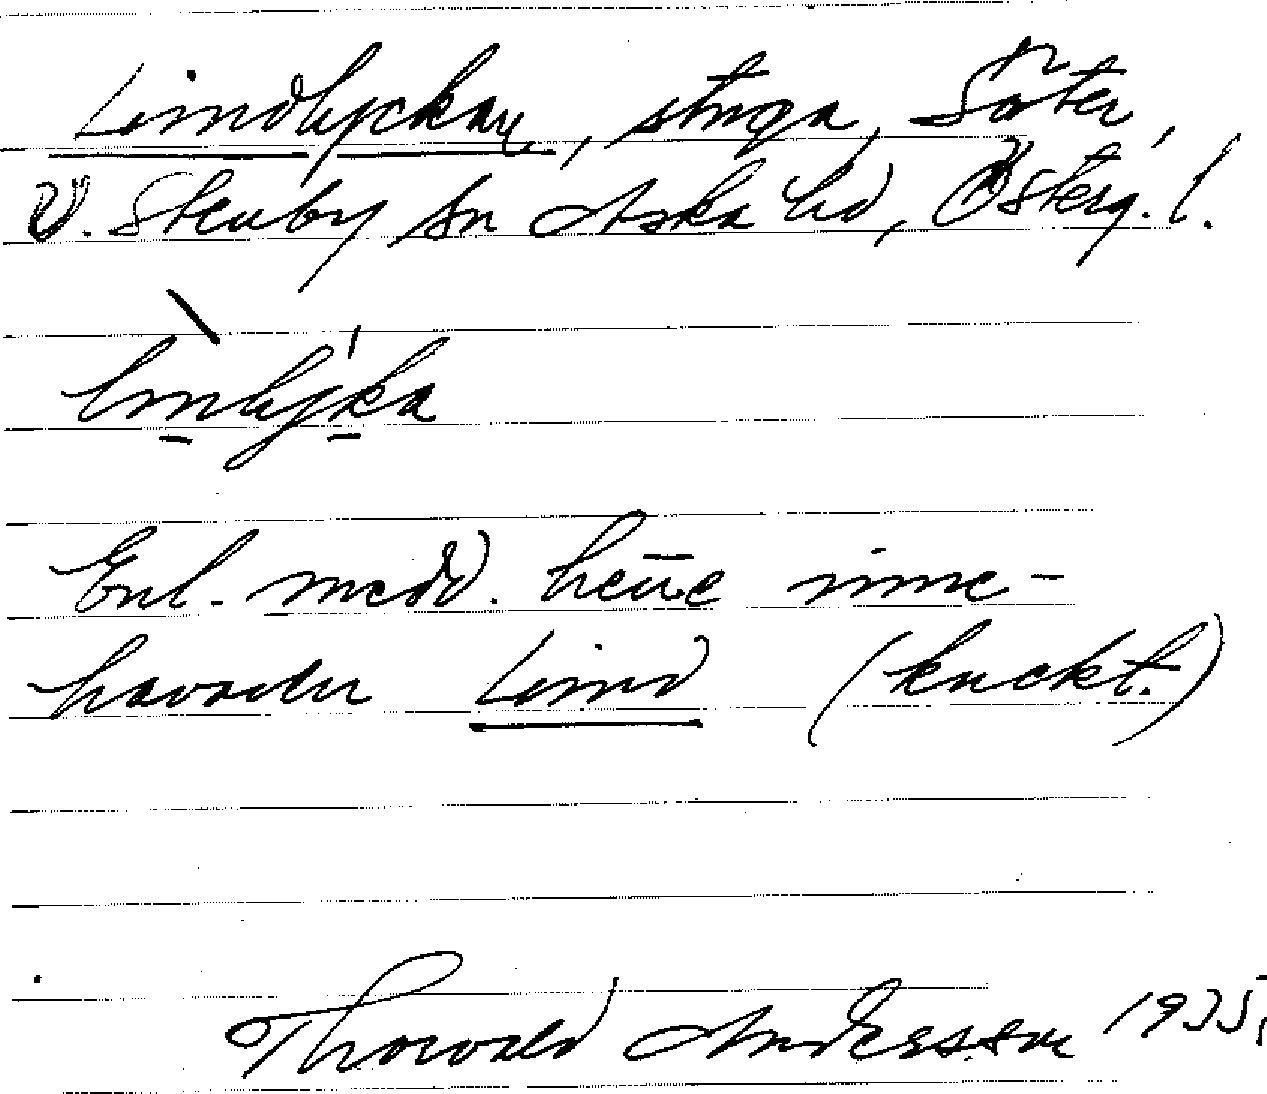 Lindlyckan, stuga, Säter,
V. Stenby sn Aska hd, Österg. l.
linlyka
Enl. medd. hette inne-
havaren Lind (knekt.)
Thorvald Andersson 1935.